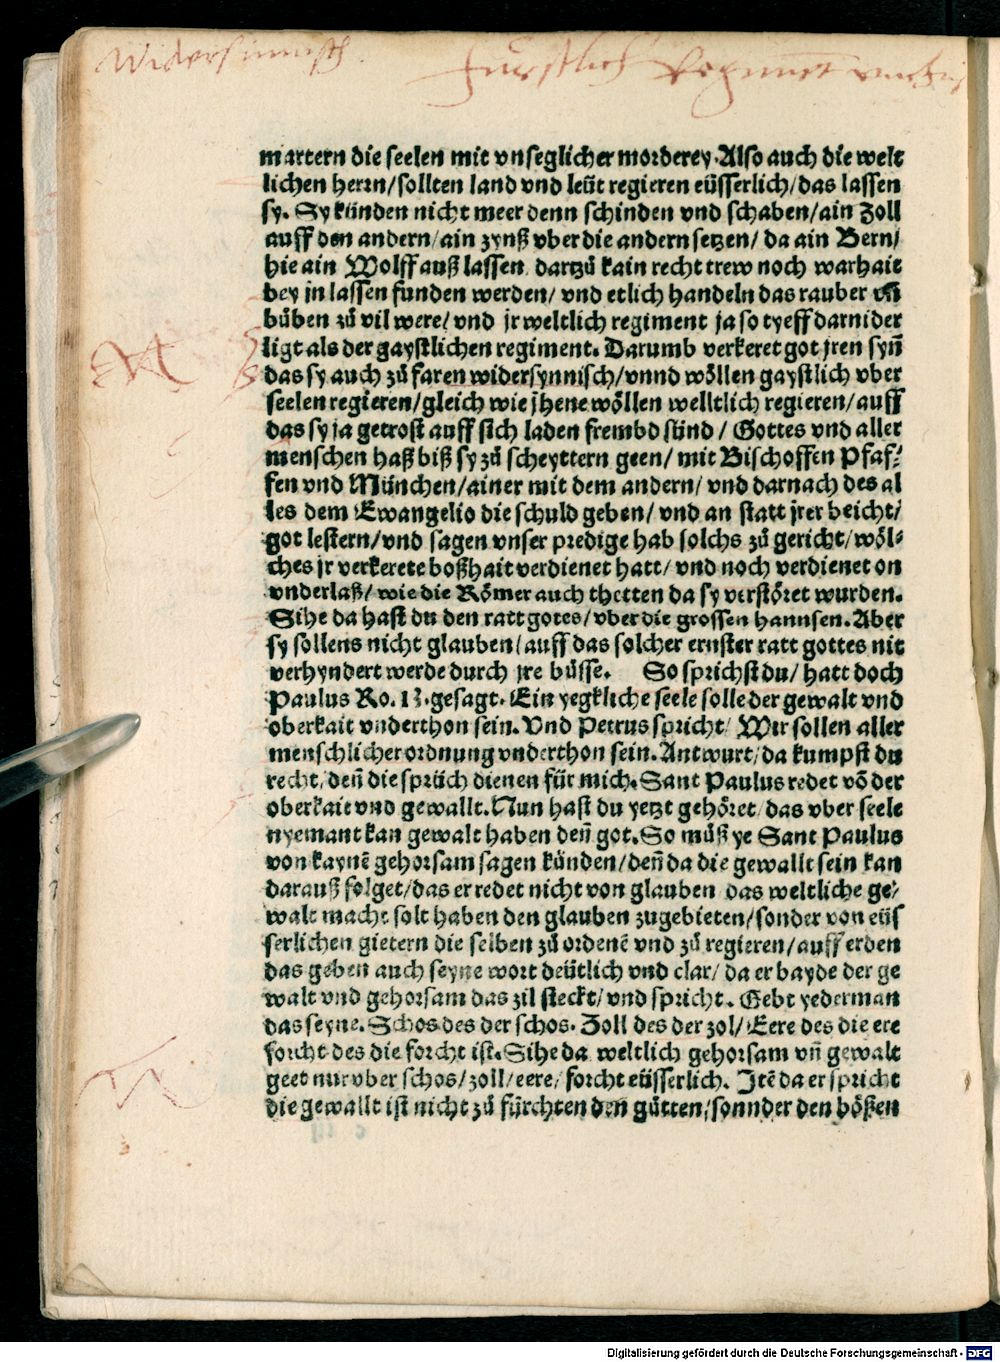 Widersinnisch
Fürstlich Regiment
martern die seelen mit vnseglicher morderey. Also auch die welt
lichen herrn/sollten land vnd leüt regieren eüsserlich/das lassen
sy. Sy künden nicht meer denn schinden vnd schaben/ain Zoll
auff den andern/ain zynß vber die andern setzen/ da ain Bern/
hie ain Wolff auß lassen, dartzů kain recht trew noch warhait
bey jn lassen funden werden/ vnd etlich handeln das rauber vñ
bůben zů vil were/ vnd jr weltlich regiment ja so tyeff darnider
ligt als der gaystlichen regiment. Darumb verkeret got jren syñ
das sy auch zů faren widersynnisch/vnnd wöllen gaystlich vber
seelen regieren/gleich wie jhene wöllen welltlich regieren/auff
das sy ja getrost auff sich laden frembd sünd / Gottes vnd aller
menschen haß biß sy zů scheyttern geen/ mit Bischoffen Pfaf-
fen vnd München/ainer mit dem andern/ vnd darnach des al
les dem Ewangelio die schuld geben/ vnd an statt jrer beicht/
got lestern/vnd sagen vnser predige hab solchs zů gericht/wöl-
ches jr verkerete boßhait verdienet hatt/ vnd noch verdienet on
vnderlaß/ wie die Römer auch thetten da sy verstöret wurden.
Sihe da hast du den ratt gotes/ vber die grossen hannsen. Aber
sy sollens nicht glauben/auff das solcher ernster ratt gottes nit
verhyndert werde durch jre bůsse. So sprichst du/ hatt doch
Paulus Ro. 13. gesagt. Ein yegkliche seele solle der gewalt vnd
oberkait vnderthon sein. Vnd Petrus spricht/ Wir sollen aller
menschlicher ordnung vnderthon sein. Antwurt/ da kumpst du
recht/ deñ die sprüch dienen für mich. Sant Paulus redet võ der
oberkait vnd gewallt. Nun hast du yetzt gehöret/das vber seele
nyemant kan gewalt haben deñ got. So můß ye Sant Paulus
von kaynẽ gehorsam sagen künden/deñ da die gewallt sein kan
darauß folget/das er redet nicht von glauben das weltliche ge-
walt macht solt haben den glauben zugebieten/sonder von eüs
serlichen gietern die selben zů ordenẽ vnd zů regieren/auff erden
das geben auch seyne wort deütlich vnd clar/ da er bayde der ge
walt vnd gehorsam das zil steckt/ vnd spricht. Gebt yederman
das seyne. Schos des der schos. Zoll des der zol/ Eere des die ere
forcht des die forcht ist. Sihe da weltlich gehorsam vñ gewalt
geet nur vber schos/zoll/eere/ forcht eüsserlich. Jtẽ da er spricht
die gewallt ist nicht zů fürchten den gůtten/sonnder den bößen
Digitalisierung gefördert durch die Deutsche Forschungsgemeinschaft - DFG